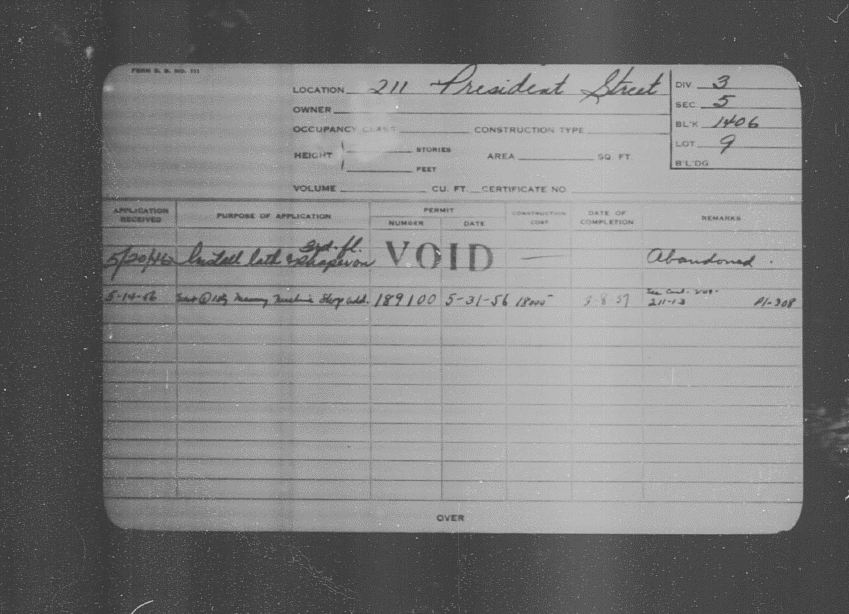 FORM B. B. NO. 111
LOCATION 211 President Street
DIV 3
OWNER
SEC 5
OCCUPANCY CLASS CONSTRUCTION TYPE
BL'K 1406
HEIGHT STORIES AREA SQ. FT.
LOT 9
FEET
B'L'DG
VOLUME CU. FT. CERTIFICATE NO.
APPLICATION RECEIVED PURPOSE OF APPLICATION PERMIT NUMBER DATE CONSTRUCTION COST DATE OF COMPLETION REMARKS
5/20/46 Install bath 3rd. fl. VOID — Abandoned.
5-14-56 1 Sty Masonry Machine Shop add. 189100 5-31-56 18000 5-8-57 See Card- 209- 211-13 P1-308
OVER